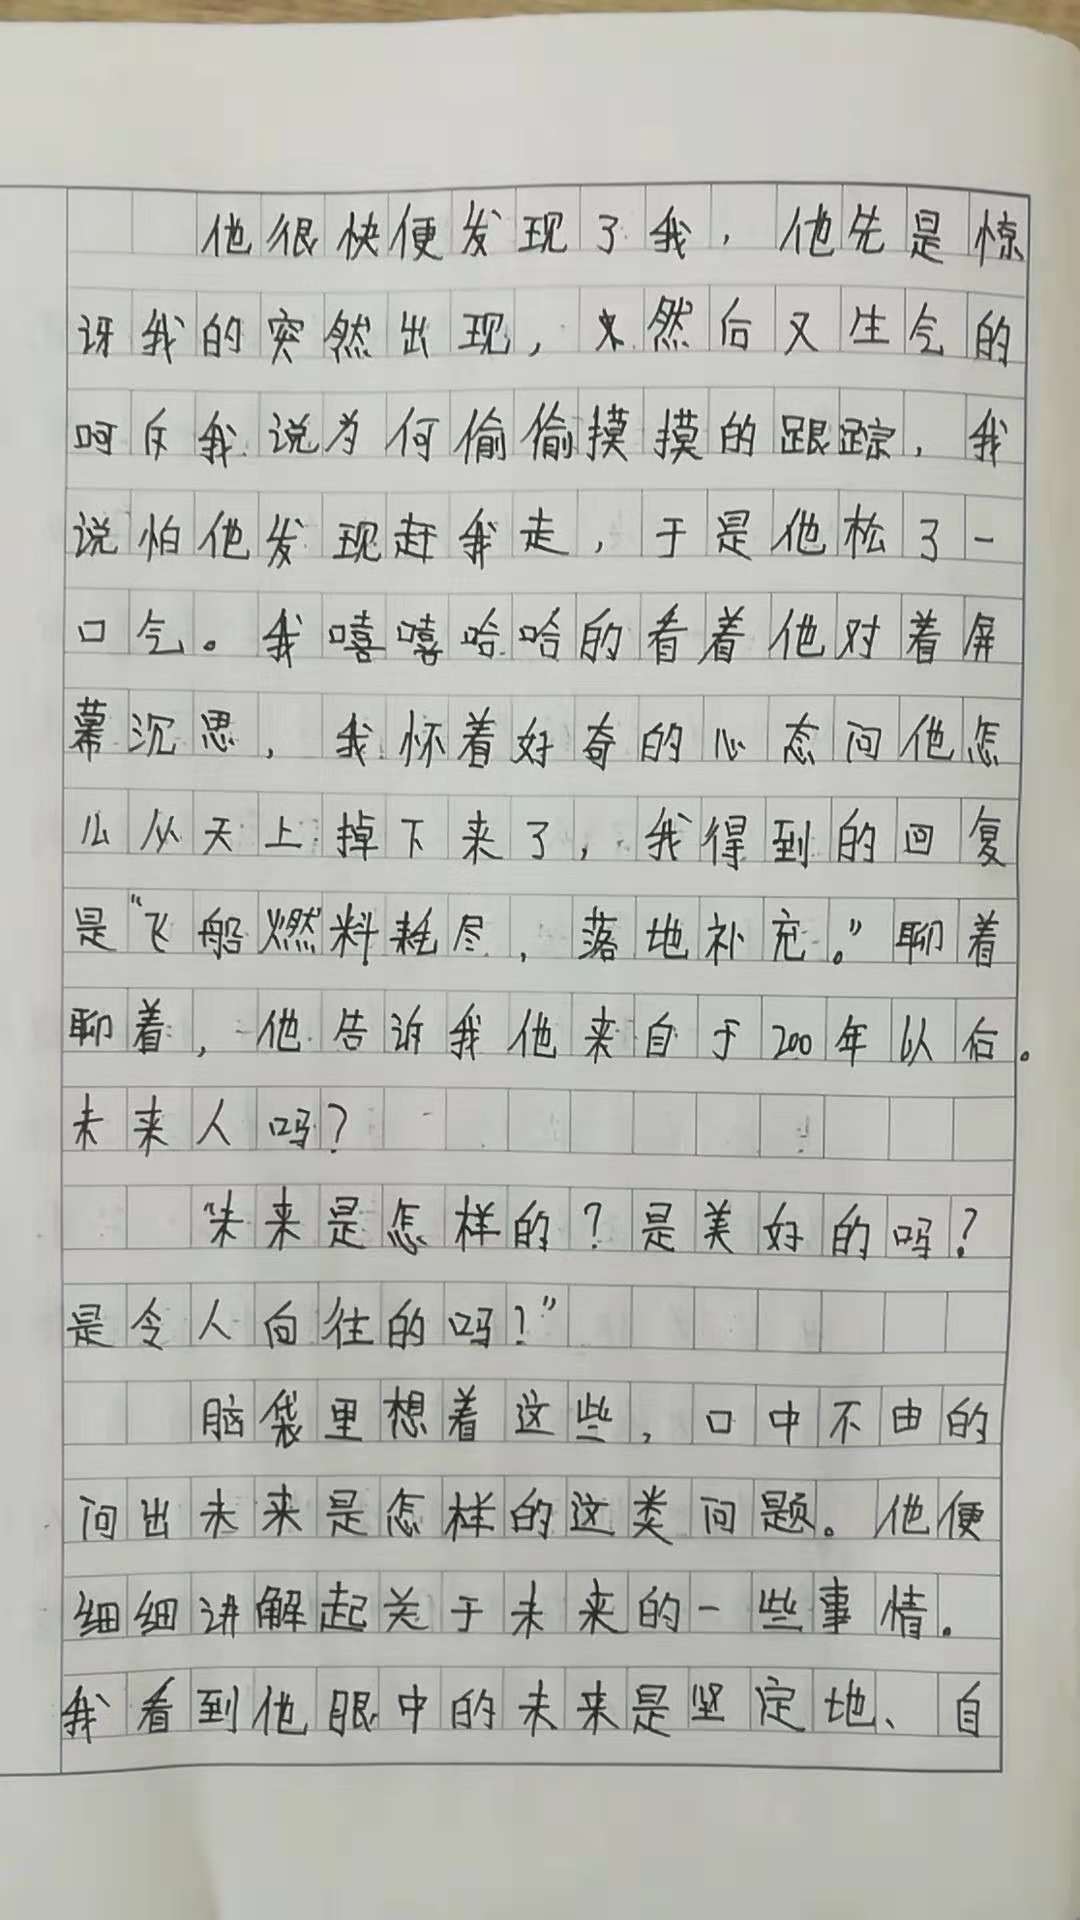 他很快便发现了我，他先是惊
讶我的突然出现，然后又生气的
呵斥我说为何偷偷摸摸的跟踪，我
说怕他发现赶我走，于是他松了一
口气。我嘻嘻哈哈的看着他对着屏
幕沉思，我怀着好奇的心态问他怎
么从天上掉下来了，我得到的回复
是“飞船燃料耗尽，落地补充。”聊着
聊着，他告诉我他来自于200年以后。
未来人吗？
“未来是怎样的？是美好的吗？
是令人向往的吗？”
脑袋里想着这些，口中不由的
问出未来是怎样的这类问题。他便
细细讲解起关于未来的一些事情。
我看到他眼中的未来是坚定地、自